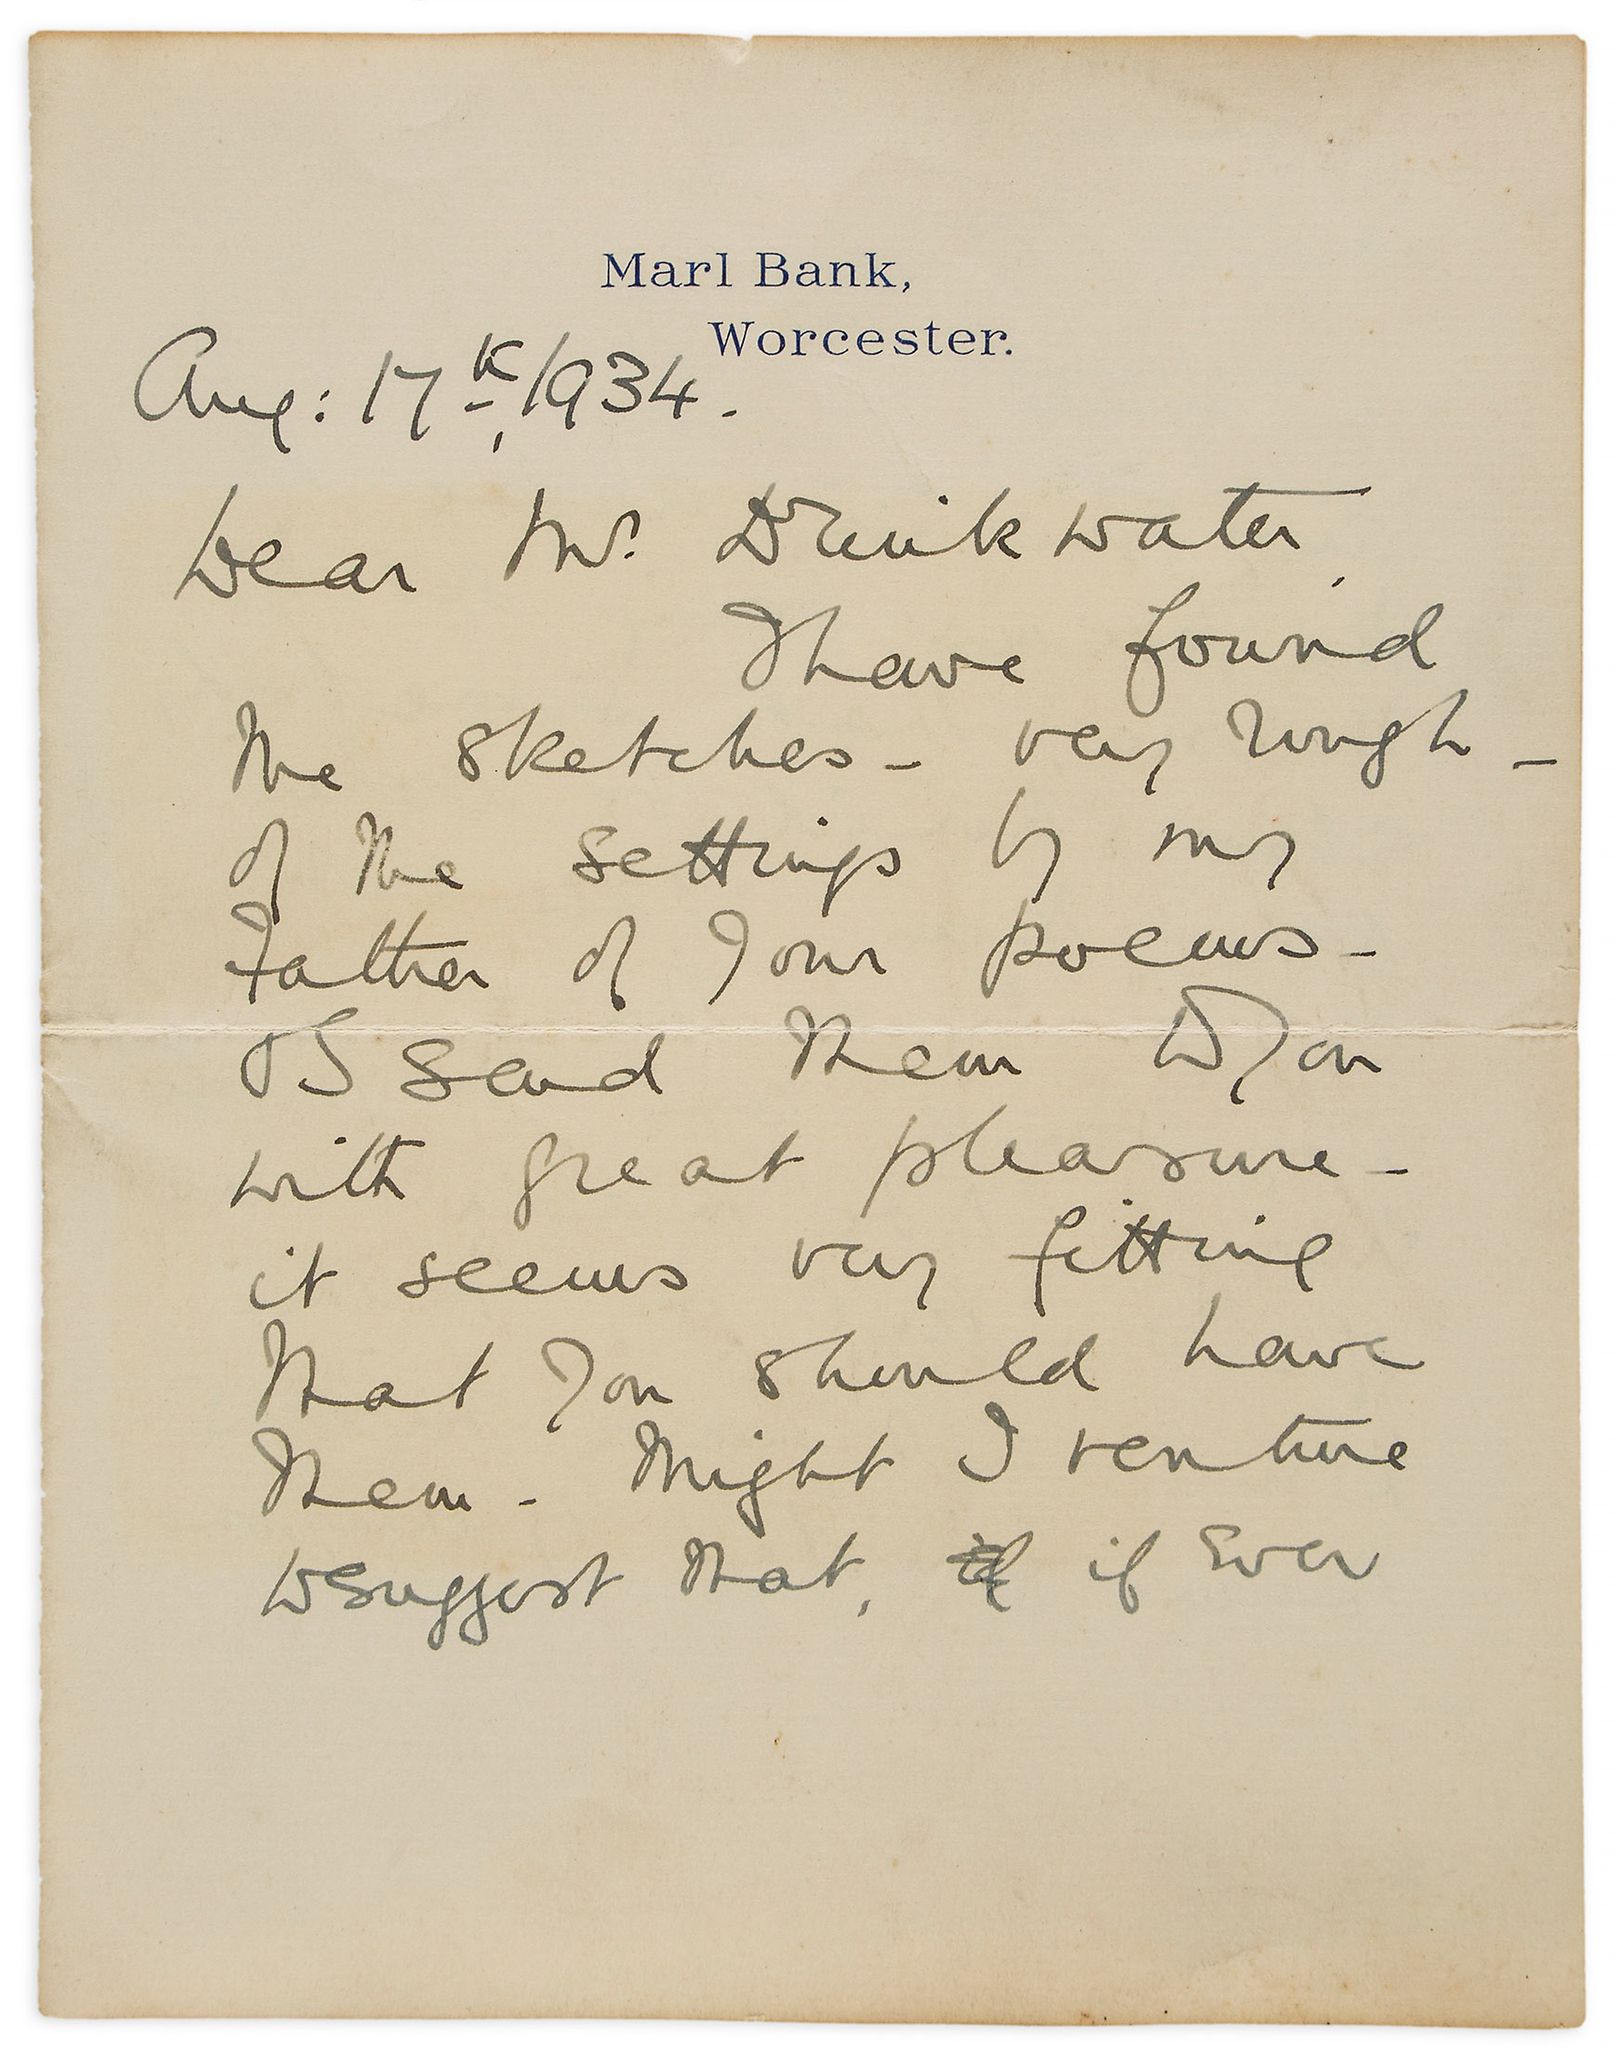 Marl Bank,
Worcester.
Aug: 17th, 1934.
Dear Mr. Drinkwater,
I have found
the sketches - very rough -
of the settings by my
Father of your poems -
& I send them to you
with great pleasure -
it seems very fitting
that you should have
them. Might I venture
to suggest that, if if ever